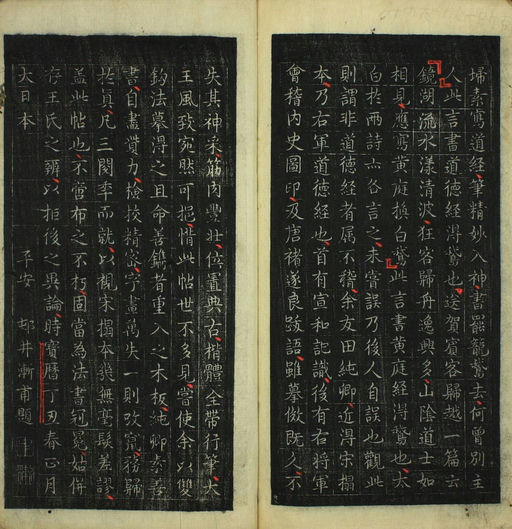 埽素寫道經筆精妙入神書罷籠鵞去何曾別主
人此言書道德經淂鵞也送賀賓客歸越一篇云
鏡湖流水漾清波狂客歸舟逸興多山陰道士如
相見應寫黃庭換白鵞此言書黃庭經淂鵞也太
白於兩詩亦各言之未嘗誤乃後人自誤也觀此
則謂非道德經者属不稽余友田純卿近淂宋搨
本乃右軍道德經也首有宣和記識後有右將軍
會稽内史圖印及唐褚遂良跋語雖摹倣既久不
失其神采筋肉豐壮位置典古楷體全帶行筆大
王風致宛然可挹惜此帖世不多見嘗使余以雙
鈎法摹淂之且命善鐫者重入之木板純卿素善
書自盡贊力檢挍精密字畫萬失一則改竄務歸
於真凡三閱年而就以視宋搨本幾無毫髪差謬
蓋此帖也不啻布之不朽固當為法書冠冕姑併
存王氏之辯以拒後之異論時寶曆丁丑春正月
大日本 平安 邨井漸甫題